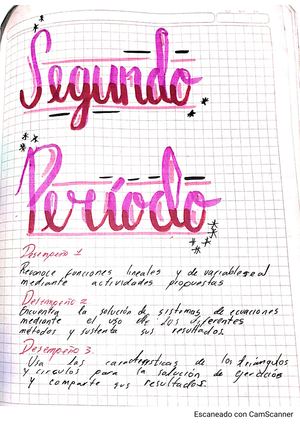 Segundo
Período
Desempeño 1
Reconoce funciones lineales y de variable real
mediante actividades propuestas
Desempeño 2
Encuentra la solución de sistemas de ecuaciones
mediante el uso de los diferentes
métodos y sustenta sus resultados.
Desempeño 3
Usa las características de los triángulos
y circulos para la solución de ejercicios
y comparte sus resultados.
Escaneado con CamScanner